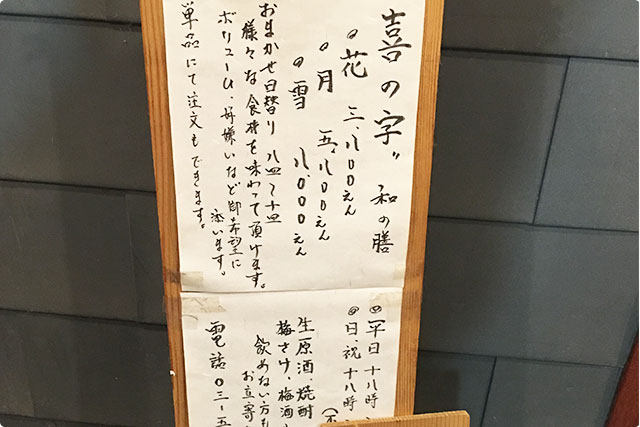 喜の字〃 和の膳
◎花 三、八〇〇えん
◎月 五、八〇〇えん
◎雪 八、〇〇〇えん
おまかせ日替り 八皿〜十皿
様々な食材を味わって頂けます。
ボリューム、好嫌いなど御希望に
添います。
単品にて注文もできます。
◎平日 十八時
◎日、祝 十八時
生原酒、焼酎
梅さけ、梅酒
飲めない方も
お立寄
電話 〇三-五